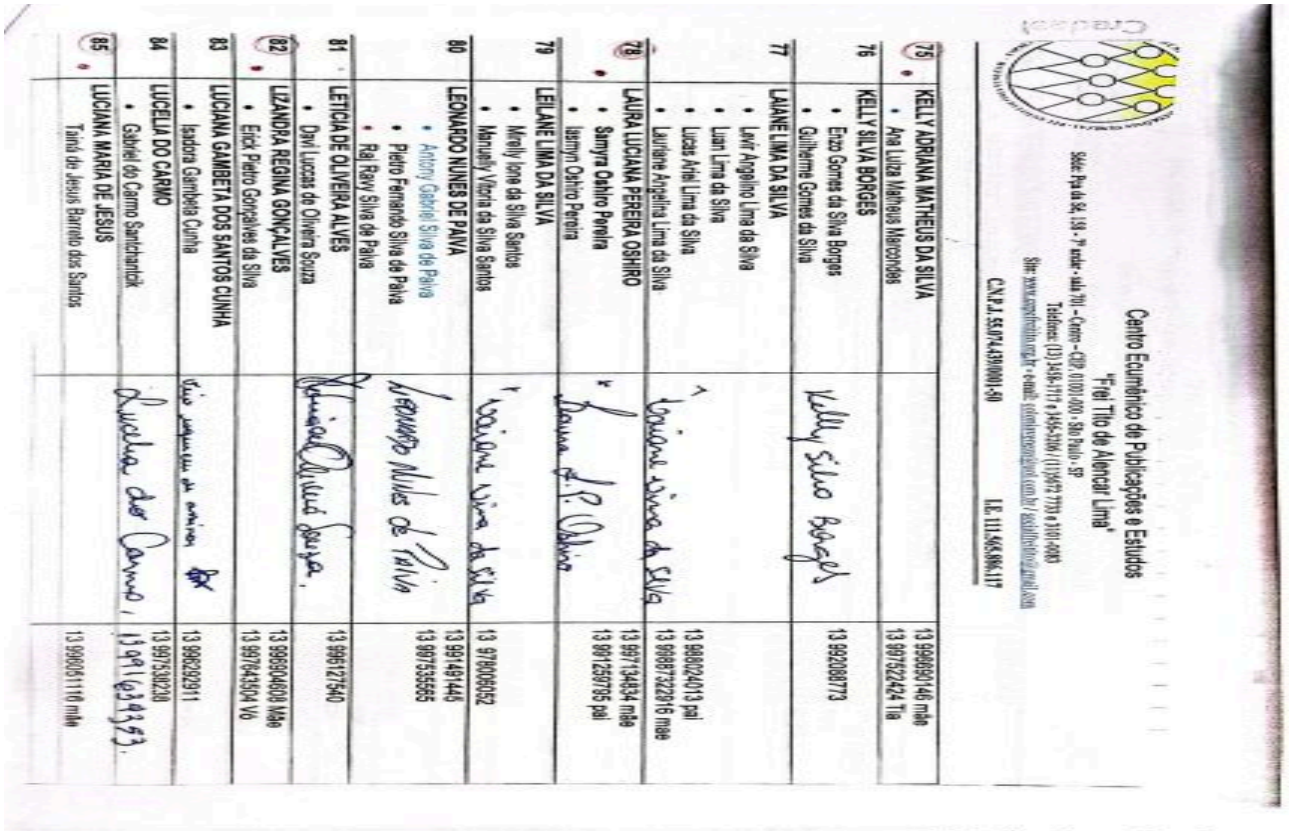 Centro Ecumênico de Publicações e Estudos
"Frei Tito de Alencar Lima"
Telefones: (13) 3456-1713 e 3456-3206 / (11) 5672 7733 e 3101-0080
C.N.P.J. 55.074.439/0001-50 I.E. 111.968.086.117
75 KELLY ADRIANA MATHEUS DA SILVA
• Ana Luiza Matheus Marcondes
13 99680146 mãe
13 997522424 Tia
76 KELLY SILVA BORGES
• Enzo Gomes da Silva Borges
• Guilherme Gomes da Silva
Kelly Silva Borges
13 992088773
77 LAIANE LIMA DA SILVA
• Levir Angelino Lima da Silva
• Luan Lima da Silva
• Lucas Ariel Lima da Silva
• Lauriane Angelina Lima da Silva
Laiane Lima da Silva
13 988024013 pai
13 99887322916 mãe
78 LAURA LUCIANA PEREIRA OSHIRO
• Samyra Oshiro Pereira
• Isamyn Oshiro Pereira
Laura L. P. Oshiro
13 997134834 mãe
13 991259795 pai
79 LEILANE LIMA DA SILVA
• Mirelly Iona da Silva Santos
• Manuelly Vitoria da Silva Santos
Laiane Lima da Silva
13 978006052
80 LEONARDO NUNES DE PAIVA
• Antony Gabriel Silva de Paiva
• Pietro Fernando Silva de Paiva
• Raj Ravy Silva de Paiva
Leonardo Nunes de Paiva
13 991491445
13 997535565
81 LETICIA DE OLIVEIRA ALVES
• Davi Luccas de Oliveira Souza
Souza,
13 996127540
82 LIZANDRA REGINA GONÇALVES
• Erick Pietro Gonçalves da Silva
13 996904608 Mãe
13 997643504 Vó
83 LUCIANA GAMBETA DOS SANTOS CUNHA
• Isadora Gambeta Cunha
13 996292911
84 LUCELIA DO CARMO
• Gabriel do Carmo Santchantbik
Lucelia do Carmo, 13991639393.
13 997538238
85 LUCIANA MARIA DE JESUS
• Tainá de Jesus Barreto dos Santos
13 996051118 mãe